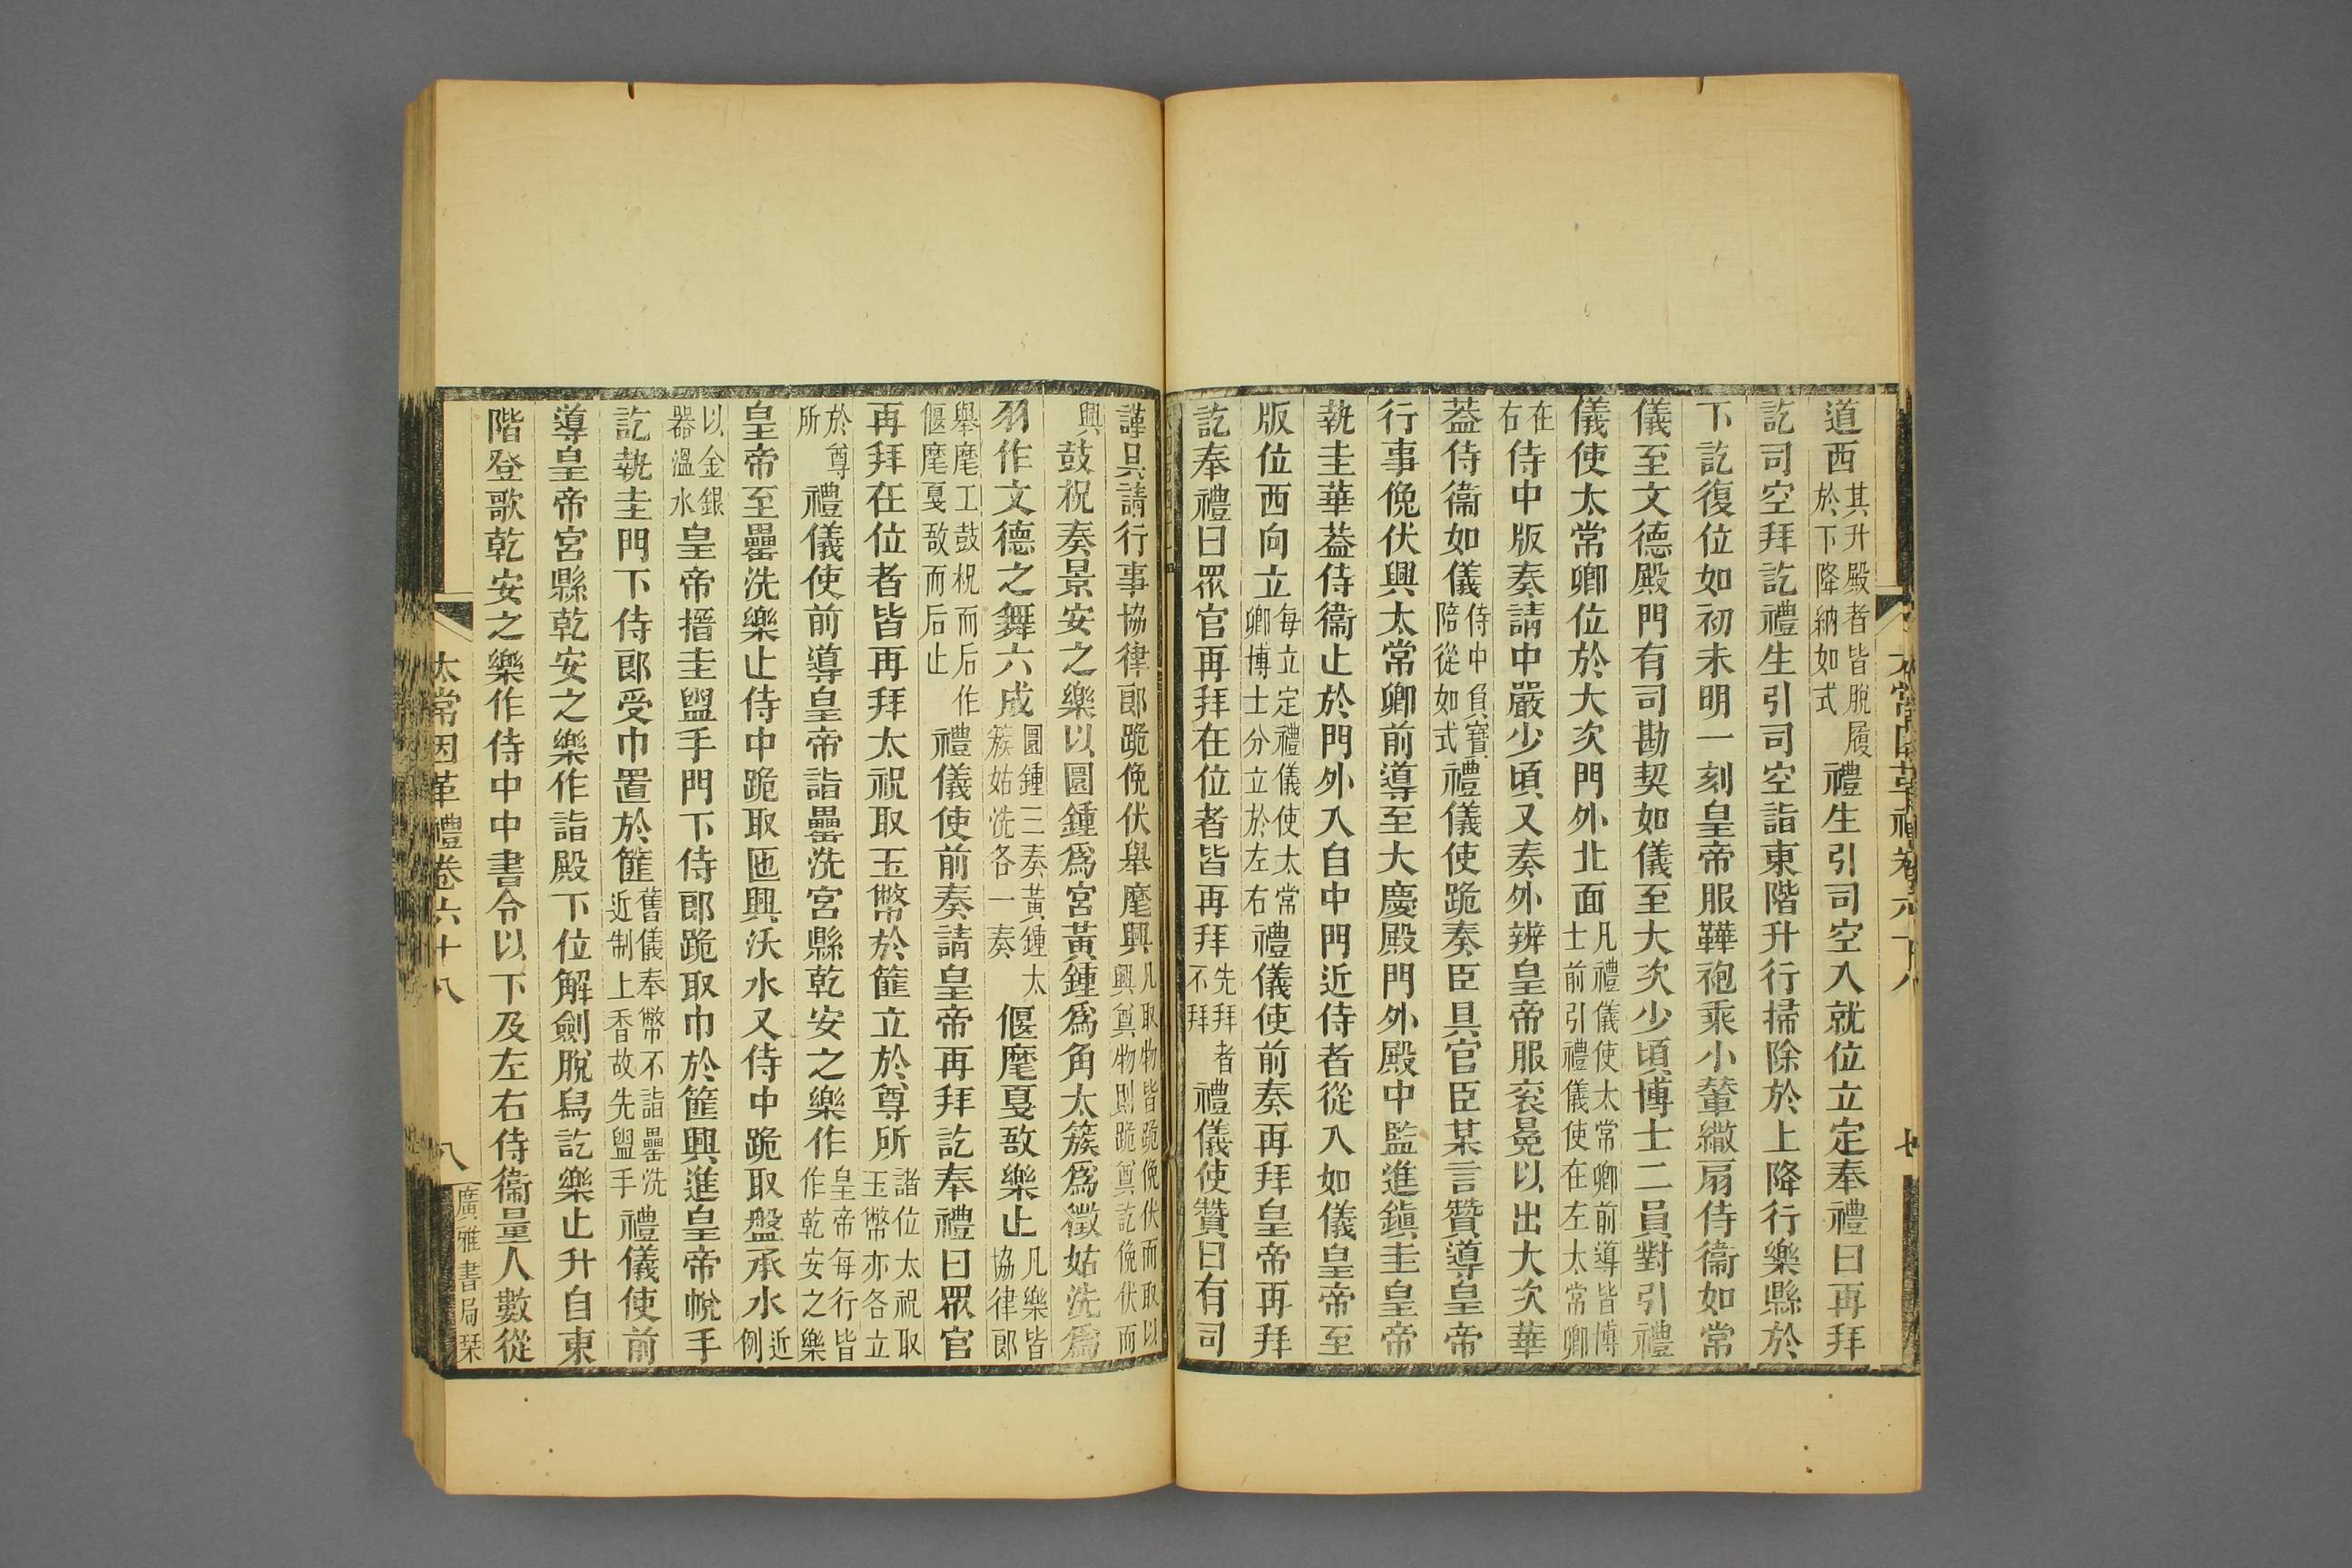 道西其升殿者皆脫履於下降納如式禮生引司空入就位立定奉禮曰再拜
訖司空拜訖禮生引司空詣東階升行掃除於上降行樂縣於
下訖復位如初未明一刻皇帝服鞾袍乘小輦繖扇侍衞如常
儀至文德殿門有司勘契如儀至大次少頃博士二員對引禮
儀使太常卿位於大次門外北面凡禮儀使太常卿前導皆博士前引禮儀使在左太常卿
在右侍中版奏請中嚴少頃又奏外辨皇帝服衮冕以出大次華
葢侍衞如儀侍中負寶陪從如式禮儀使跪奏臣具官臣某言贊導皇帝
行事俛伏興太常卿前導至大慶殿門外殿中監進鎭圭皇帝
執圭華葢侍衞止於門外入自中門近侍者從入如儀皇帝至
版位西向立每立定禮儀使太常卿博士分立於左右禮儀使前奏再拜皇帝再拜
訖奉禮曰眾官再拜在位者皆再拜先拜者不拜禮儀使贊曰有司
謹具請行事協律郎跪俛伏舉麾興凡取物皆跪俛伏而取以興奠物則跪奠訖俛伏而
興鼓柷奏景安之樂以圜鍾爲宮黃鍾爲角太簇爲徵姑洗爲
羽作文德之舞六成圜鍾三奏黃鍾太簇姑洗各一奏偃麾戛敔樂止凡樂皆協律郎
舉麾工鼓柷而后作偃麾戛敔而后止禮儀使前奏請皇帝再拜訖奉禮曰眾官
再拜在位者皆再拜太祝取玉幣於篚立於尊所諸位太祝取玉幣亦各立
於尊所禮儀使前導皇帝詣罍洗宮縣乾安之樂作皇帝每行皆作乾安之樂
皇帝至罍洗樂止侍中跪取匜興沃水又侍中跪取盤承水近例
以金銀器溫水皇帝搢圭盥手門下侍郎跪取巾於篚興進皇帝帨手
訖執圭門下侍郎受巾置於篚舊儀奉幣不詣罍洗近制上香故先盥手禮儀使前
導皇帝宮縣乾安之樂作詣殿下位解劍脫舃訖樂止升自東
階登歌乾安之樂作侍中中書令以下及左右侍衞量人數從
太常因革禮卷六十八
八
廣雅書局栞